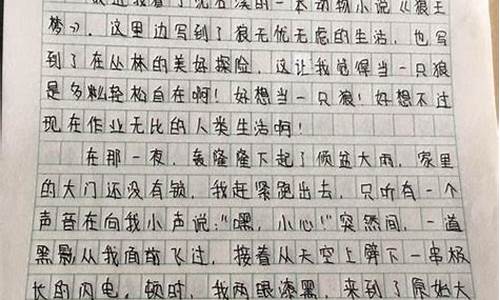 我看了沈石溪的一本动物小说《狼王
梦》，这里边写到了狼无忧无虑的生活，也写
到了在丛林的美好探险，这让我觉得当一只狼
是多么轻松自在啊！好想当一只狼！好想不过
现在作业无比的人类生活啊！
在那一夜，轰隆隆下起了倾盆大雨，家里
的大门还没有锁，我赶紧跑出去，只听有一个
声音在向我小声说："嘿，小心！"突然间，一道
黑影从我面前飞过，接着从天空上劈下一串极
长的闪电，顿时，我两眼漆黑，来到了原始大